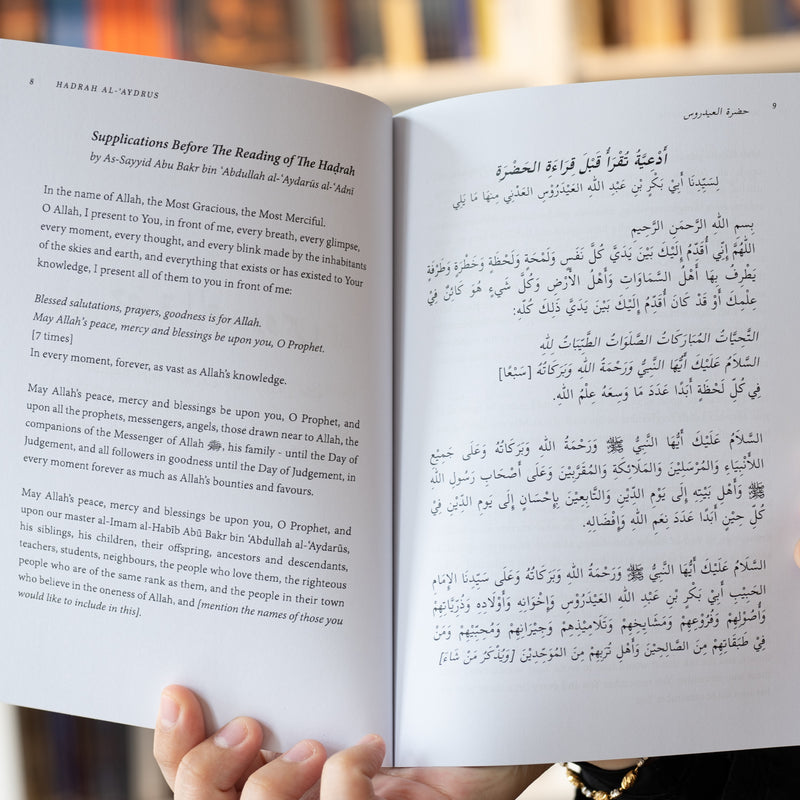 8 HADRAH AL-‘AYDRUS
Supplications Before The Reading of The Haḍrah
by As-Sayyid Abu Bakr bin ‘Abdullah al-‘Aydarūs al-‘Adnī
In the name of Allah, the Most Gracious, the Most Merciful.
O Allah, I present to You, in front of me, every breath, every glimpse,
every moment, every thought, and every blink made by the inhabitants
of the skies and earth, and everything that exists or has existed to Your
knowledge, I present all of them to you in front of me:
Blessed salutations, prayers, goodness is for Allah.
May Allah’s peace, mercy and blessings be upon you, O Prophet.
[7 times]
In every moment, forever, as vast as Allah’s knowledge.
May Allah’s peace, mercy and blessings be upon you, O Prophet, and
upon all the prophets, messengers, angels, those drawn near to Allah, the
companions of the Messenger of Allah ﷺ, his family - until the Day of
Judgement, and all followers in goodness until the Day of Judgement, in
every moment forever as much as Allah’s bounties and favours.
May Allah’s peace, mercy and blessings be upon you, O Prophet, and
upon our master al-Imam al-Habīb Abū Bakr bin ‘Abdullah al-‘Aydarūs,
his siblings, his children, their offspring, ancestors and descendants,
teachers, students, neighbours, the people who love them, the righteous
people who are of the same rank as them, and the people in their town
who believe in the oneness of Allah, and [mention the names of those you
would like to include in this].
حضرة العيدروس 9
أَدْعِيَّةُ تُقْرَأُ قَبْلَ قِرَاءَةِ الحَضْرَة
لِسَيِّدِنَا أَبِيْ بَكْرٍ بْنِ عَبْدِ اللهِ العَيْدَرُوْسِ العَدْنِي مِنهَا مَا يَلِي
بِسمِ اللهِ الرَّحمَنِ الرَّحِيمِ
اللَّهُمَّ إِنِّي أُقَدِّمُ إِلَيْكَ بَيْنَ يَدَيَّ كُلِّ نَفَسٍ وَلَمْحَةٍ وَلَحْظَةٍ وَخَطْرَةٍ وَطَرْفَةٍ
يَطْرِفُ بِهَا أَهْلُ السَّمَاوَاتِ وَأَهْلُ الْأَرْضِ وَكُلِّ شَيءٍ هُوَ كَائِنٌ فِيْ
عِلْمِكَ أَوْ قَدْ كَانَ أُقَدِّمُ إِلَيْكَ بَيْنَ يَدَيَّ ذَلِكَ كُلِّهِ:
التَّحِيَّاتُ المُبَارَكَاتُ الصَّلَوَاتُ الطَّيِّبَاتُ لِلهِ
السَّلاَمُ عَلَيْكَ أَيُّهَا النَّبِيُّ وَرَحْمَةُ اللهِ وَبَرَكَاتُه [سَبْعًا]
فِي كُلِّ لَحْظَةٍ أَبَدًا عَدَدَ مَا وَسِعَهُ عِلْمُ اللهِ.
السَّلاَمُ عَلَيْكَ أَيُّهَا النَّبِيُّ ﷺ وَرَحْمَةُ اللهِ وَبَرَكَاتُهُ وَعَلَى جَمِيْعِ
اللأَنْبِيَاءِ وَالمُرْسَلِيْنَ وَالمَلَائِكَةِ وَالمُقَرَّبِيْنَ وَعَلَى أَصْحَابِ رَسُولِ اللهِ
ﷺ وَأَهْلِ بَيْتِهِ إِلَى يَوْمِ الدِّيْنِ وَالتَّابِعِيْنَ بِإِحْسَانٍ إِلَى يَومِ الدِّيْنِ فِيْ
كُلِّ حِيْنٍ أَبَدًا عَدَدَ نِعَمِ اللهِ وَإِفْضَالِهِ.
السَّلاَمُ عَلَيْكَ أَيُّهَا النَّبِيُّ ﷺ وَرَحْمَةُ اللهِ وَبَرَكَاتُهُ وَعَلَى سَيِّدِنَا الإِمَامِ
الحَبِيْبِ أَبِيْ بَكْرٍ بْنِ عَبْدِ اللهِ العَيْدَرُوْسِ وَإِخْوَانِهِ وَأَوْلَادِهِ وَذُرِّيَّاتِهِمْ
وَأُصُوْلِهِمْ وَفُرُوْعِهِمْ وَمَشَايِخِهِمْ وَتَلَامِيْذِهِمْ وَجِيْرَانِهِمْ وَمُحِبِّيْهِمْ وَمَنْ
فِيْ طَبَقَاتِهِمْ مِنَ الصَّالِحِيْنَ وَأَهْلِ تُرَبِهِمْ مِنَ المُوَحِّدِيْنَ [وَيُذْكَرُ مَنْ شَاءَ]